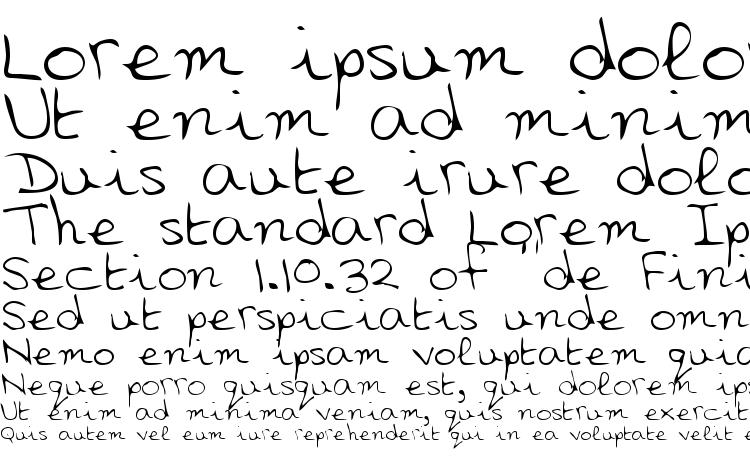 Lorem ipsum dolor
Ut enim ad minim
Duis aute irure dolo
The standard Lorem Ip
Section 1.10.32 of "de Fini
Sed ut perspiciatis unde omn
Nemo enim ipsam voluptatem quia
Neque porro quisquam est, qui dolorem ips
Ut enim ad minima veniam, quis nostrum exercit
Quis autem vel eum iure reprehenderit qui in ea voluptate velit e